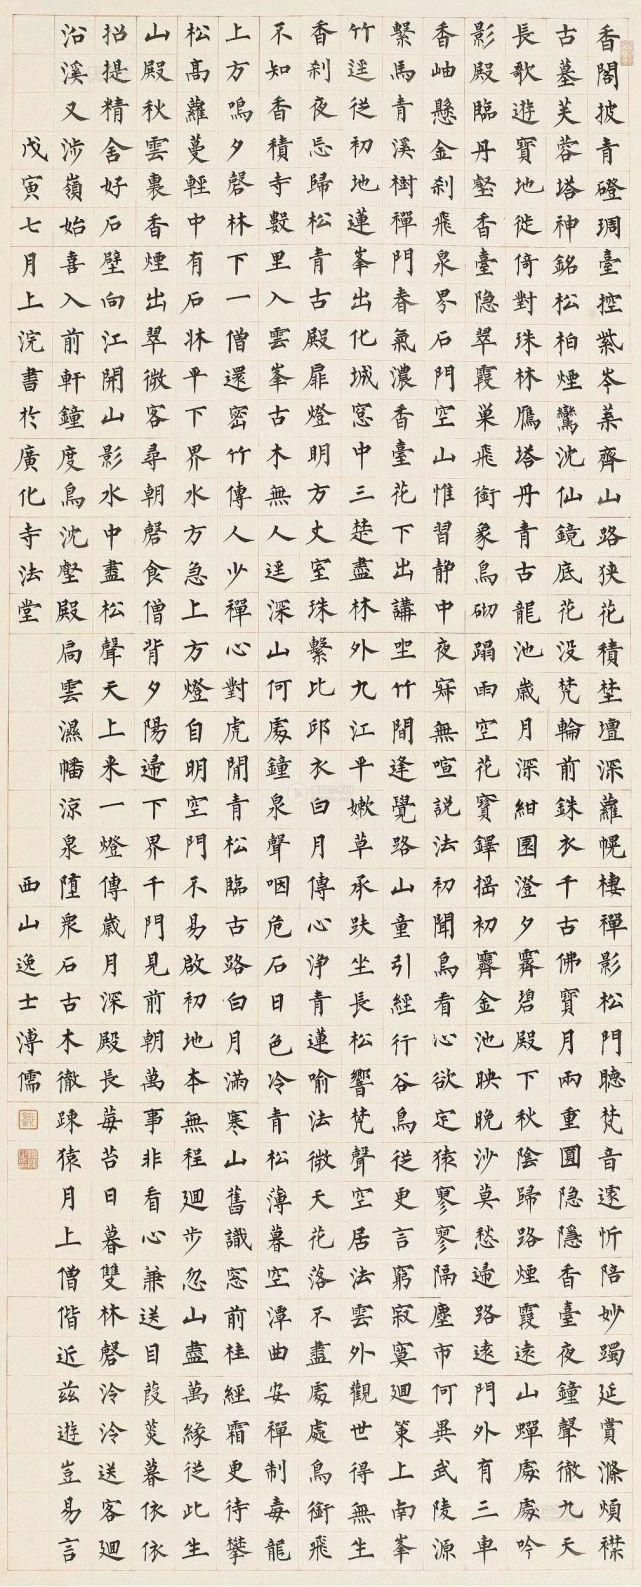 香閣披青磴琱臺控紫岑葉齊山路狹花積埜壇深蘿幌棲禪影松門聴梵音遽忻陪妙躅延賞滌煩襟
古墓芙蓉塔神銘松柏煙鸞沈仙鏡底花没梵輪前銖衣千古佛寶月兩重圓隐隱香臺夜鐘聲徹九天
長歌遊寶地徙倚對珠林鴈塔丹青古龍池歲月深紺園澄夕霽碧殿下秋陰歸路煙霞遠山蟬處處吟
影殿臨丹壑香臺隐翠霞巢飛銜象鳥砌蹋雨空花寶鐸揺初霽金池映晚沙莫愁歸路遠門外有三車
香岫懸金刹飛泉界石門空山惟習静中夜寂無喧説法初聞鳥看心欲定猿寥寥隔塵市何異武陵源
繫馬青溪樹禪門春氣濃香臺花下出講坐竹間逢覺路山童引經行谷鳥從更言窮寂寞廻策上南峯
竹逕從初地蓮峯出化城窓中三楚盡林外九江平嫰草承趺坐長松響梵聲空居法雲外觀世得無生
香刹夜忘歸松青古殿扉燈明方丈室珠繫比邱衣白月傳心浄青蓮喻法微天花落不盡處處鳥銜飛
不知香積寺數里入雲峯古木無人逕深山何處鐘泉聲咽危石日色冷青松薄暮空潭曲安禪制毒龍
上方鳴夕磬林下一僧還密竹傳人少禪心對虎閒青松臨古路白月滿寒山舊識窓前桂經霜更待攀
松髙蘿蔓輕中有石牀平下界水方急上方燈自明空門不易啟初地本無程廻步忽山盡萬緣從此生
山殿秋雲裏香煙出翠微客尋朝磬食僧背夕陽歸下界千門見前朝萬事非看心兼送目葭菼暮依依
招提精舍好石壁向江開山影水中盡松聲天上来一燈傳歲月深殿長莓苔日暮雙林磬泠泠送客廻
沿溪又涉嶺始喜入前軒鐘度鳥沈壑殿扃雲濕幡涼泉墮衆石古木徹疎猿月上僧偕近兹遊豈易言
戊寅七月上浣書於廣化寺法堂
西山逸士溥儒